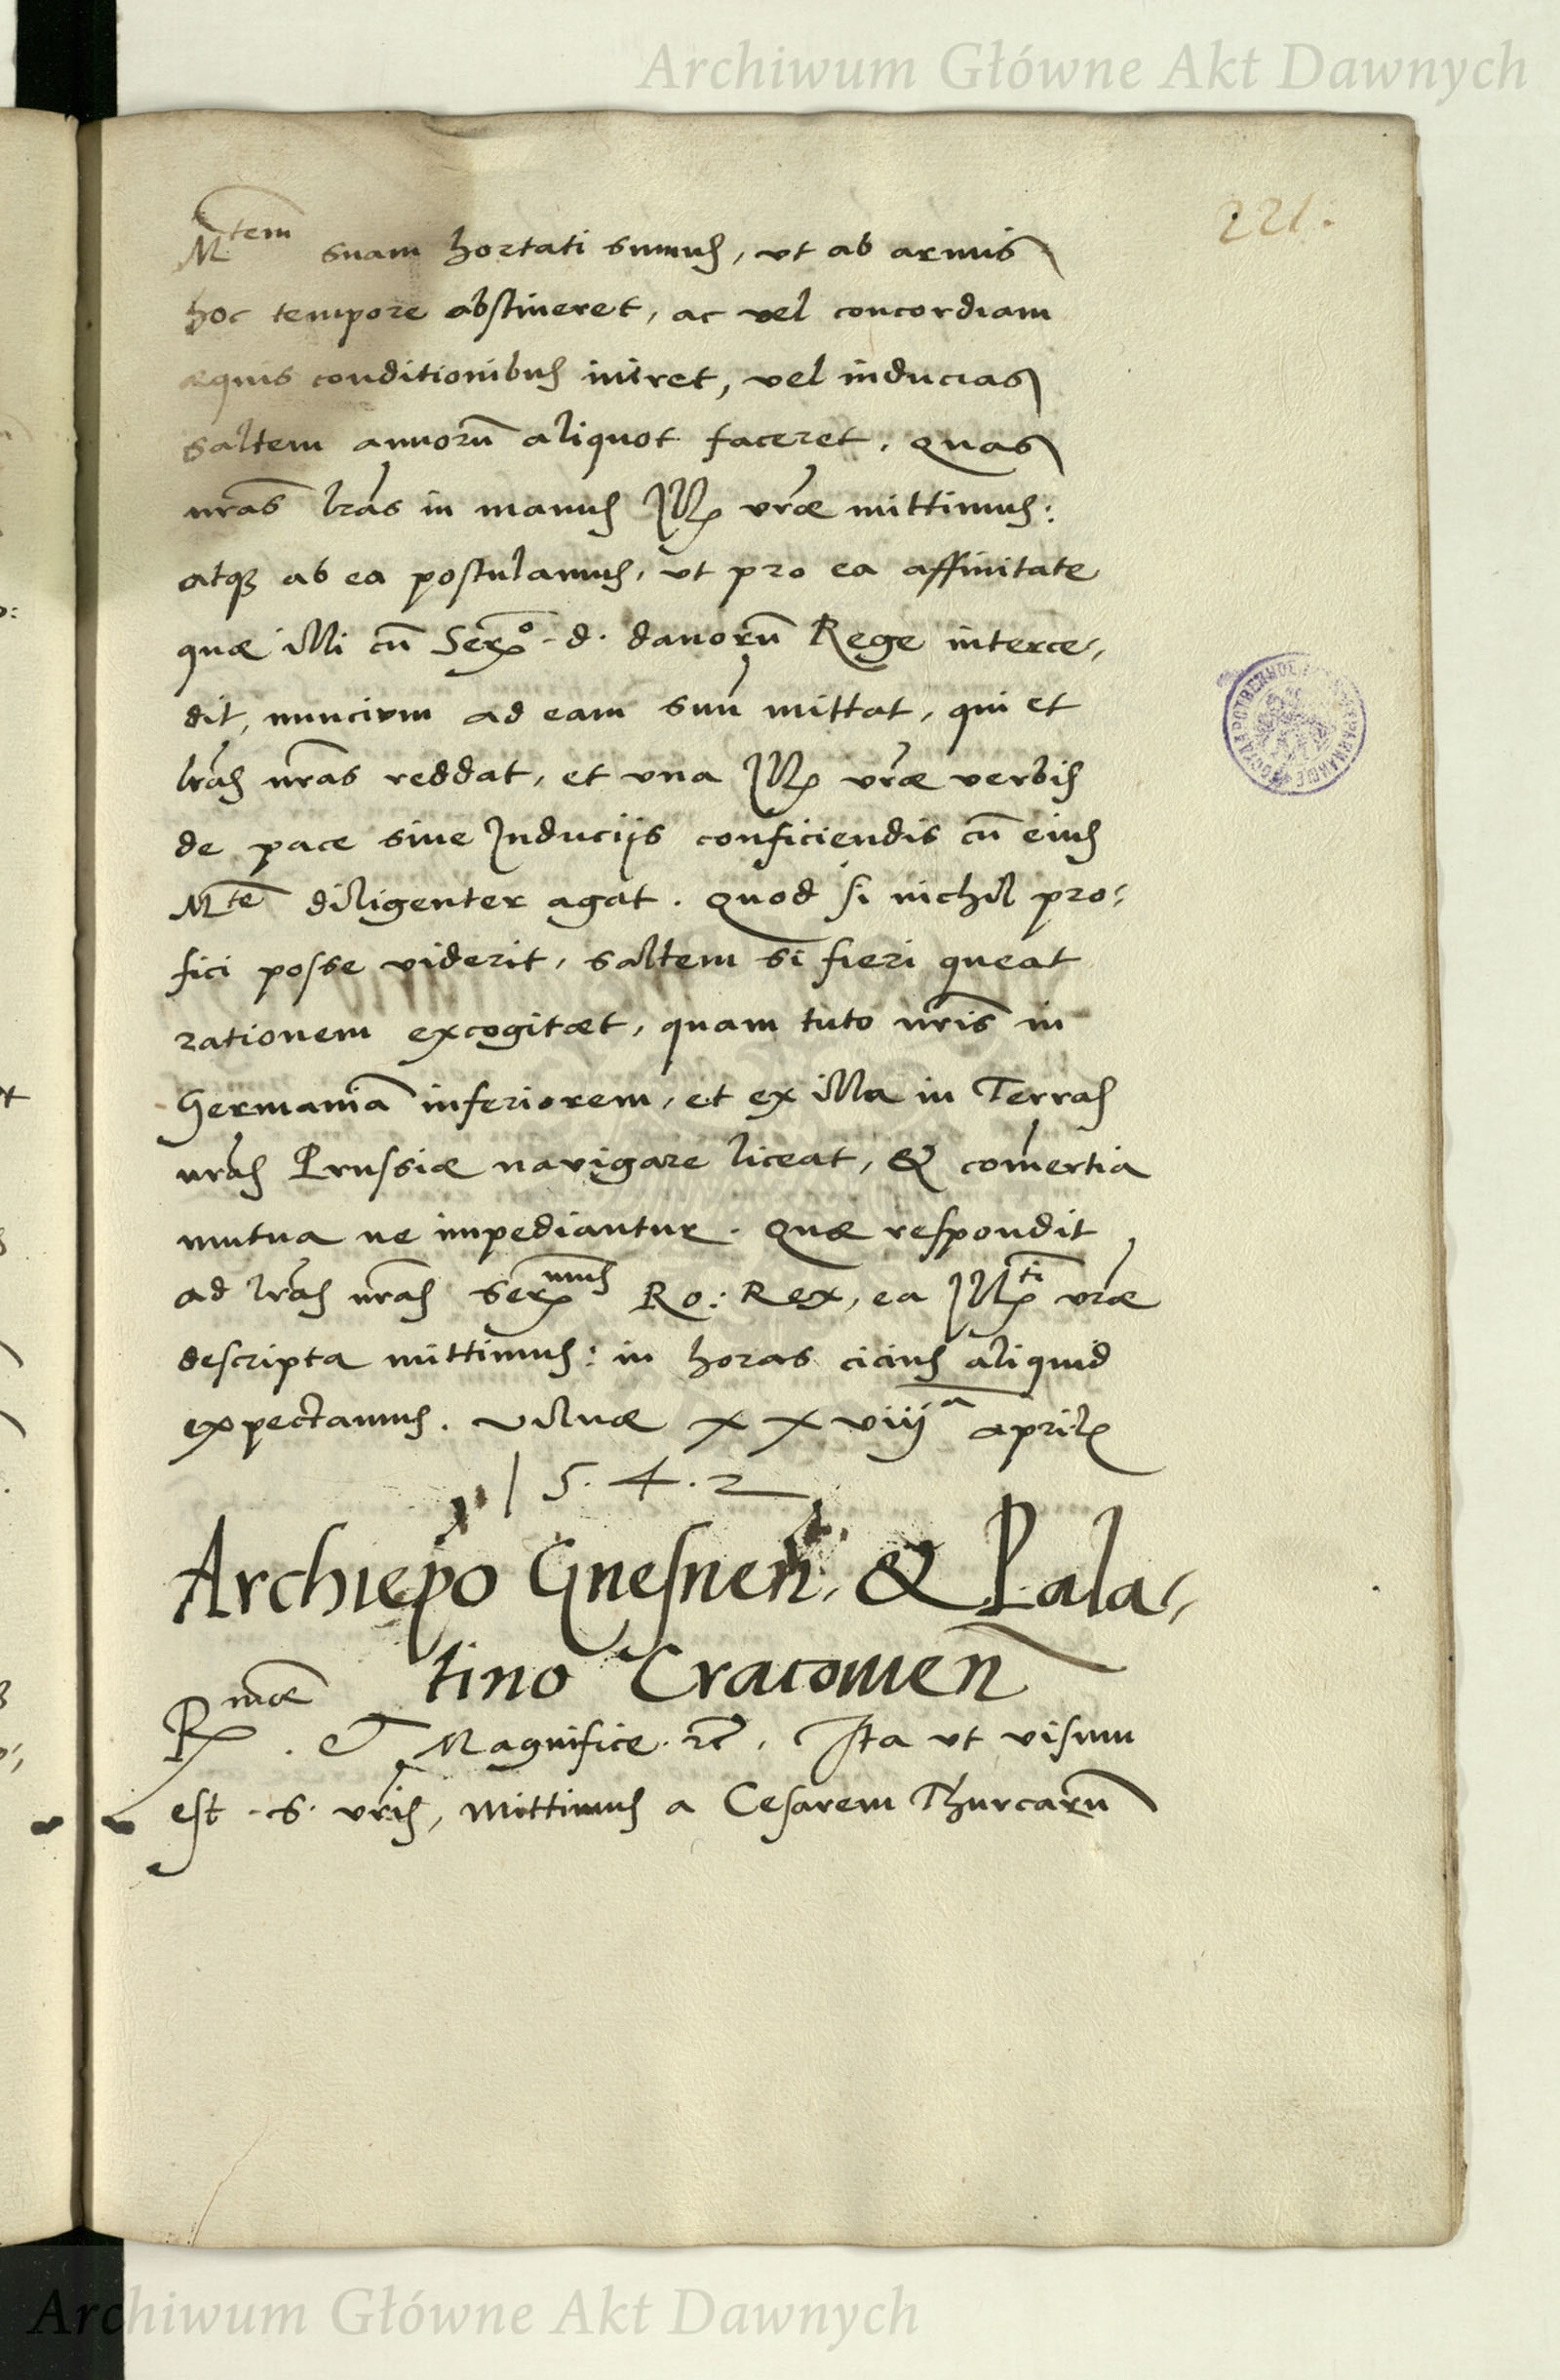 Archiwum Główne Akt Dawnych
221.
M^tem suam hortati sumus, ut ab armis
hoc tempore abstineret, ac vel concordiam
æquis conditionibus iniret, vel inducias
saltem annorũ aliquot faceret. Quas
nr̃as lr̃as in manus Ill. vr̃æ mittimus:
atq3 ab ea postulamus, ut pro ea affinitate
quæ illi cũ Ser^o. d. danorũ Rege interce,
dit, nuncium ad eam suũ mittat, qui et
lr̃as nr̃as reddat, et una Ill. vr̃æ verbis
de pace sive Inducijs conficiendis cũ eius
M^te diligenter agat. Quod si nichil pro:
fici posse viderit, saltem si fieri queat
rationem excogitet, quam tuto nr̃is in
Germaniã inferiorem, et ex illa in Terras
nr̃as Prussiæ navigare liceat, & com̃ertia
mutua ne impediantur. Quæ respondit
ad lr̃as nr̃as Ser^mus Ro: Rex, ea Ill^ti vr̃æ
descripta mittimus: in horas cicius aliquid
expectamus. Vilnæ XXviij^a april
1 5. 4. 2
Archiepo Gnesneñ. & Pala,
tino Cracovien
R^mæ . et Magnifice. rc. Ita ut visum
est .S. vr̃is, Mittimus a Cesarem Thurcarũ
Archiwum Główne Akt Dawnych